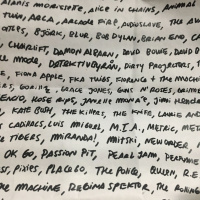 Alanis Morissette, Alice in Chains, Animal
Twin, Abca, Arcade Fire, Audioslave, The Aw
eatles, Björk, Blur, Bob Dylan, Brian Eno, C
Chairlift, Damon Albarn, David Bowie, David B
e Mode, Detektivbyrån, Dirty Projectors, F
e, Fiona Apple, FKA Twigs, Florence & the Mach
s, Gorillaz, Grace Jones, Guns N' Roses, Haim
Hozier, Iron &
Kate Bush, The Killers, The Knife, Laurie And
Cadillacs, Luis Miguel, M.I.A., Metric, Met
e Tigers, Miranda!, Mitski, New Order,
OK Go, Passion Pit, Pearl Jam, Perfume
ss, Pixies, Placebo, The Police, Queen, R.E
he Machine, Regina Spektor, The Rolling